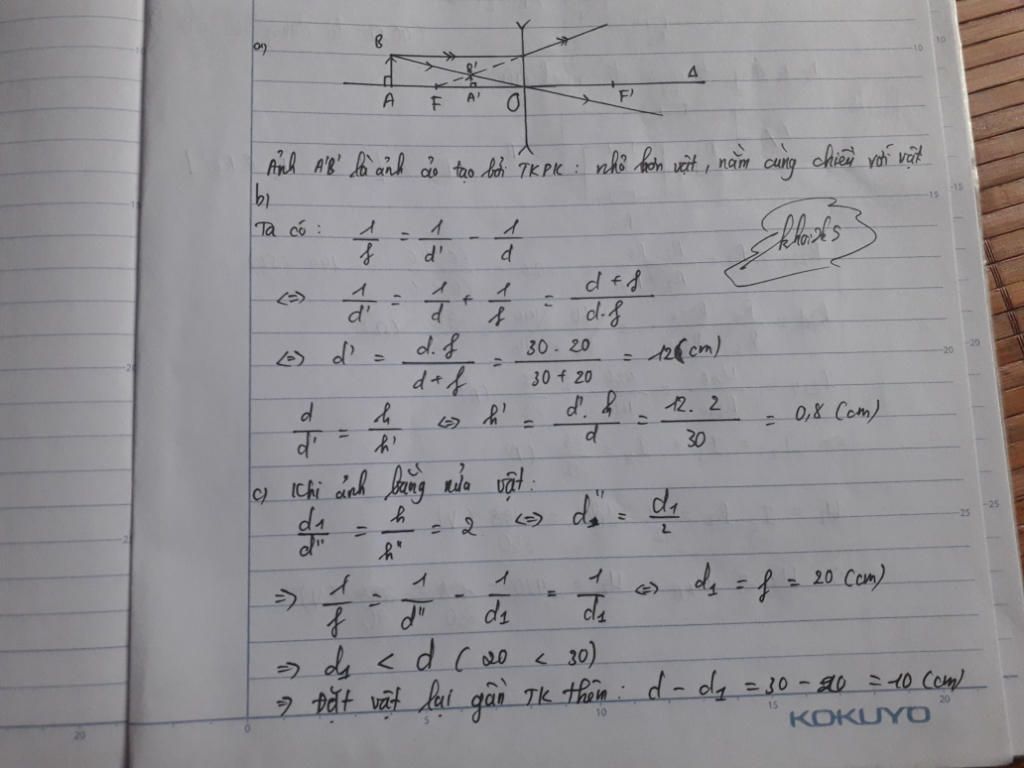 a)
B
B'
Δ
A F A' O F'
Ảnh A'B' là ảnh ảo tạo bởi TKPK: nhỏ hơn vật, nằm cùng chiều với vật
b)
Ta có: 1/f = 1/d' - 1/d
khoizks
<=> 1/d' = 1/d + 1/f = (d + f)/(d.f)
<=> d' = (d.f)/(d + f) = (30 . 20)/(30 + 20) = 12 (cm)
d/d' = h/h' <=> h' = (d'. h)/d = (12 . 2)/30 = 0,8 (cm)
c) Khi ảnh bằng nửa vật:
d1/d'' = h/h'' = 2 <=> d'' = d1/2
=> 1/f = 1/d'' - 1/d1 = 1/d1 <=> d1 = f = 20 (cm)
=> d1 < d (20 < 30)
=> Đặt vật lại gần TK thêm: d - d1 = 30 - 20 = 10 (cm)
KOKUYO